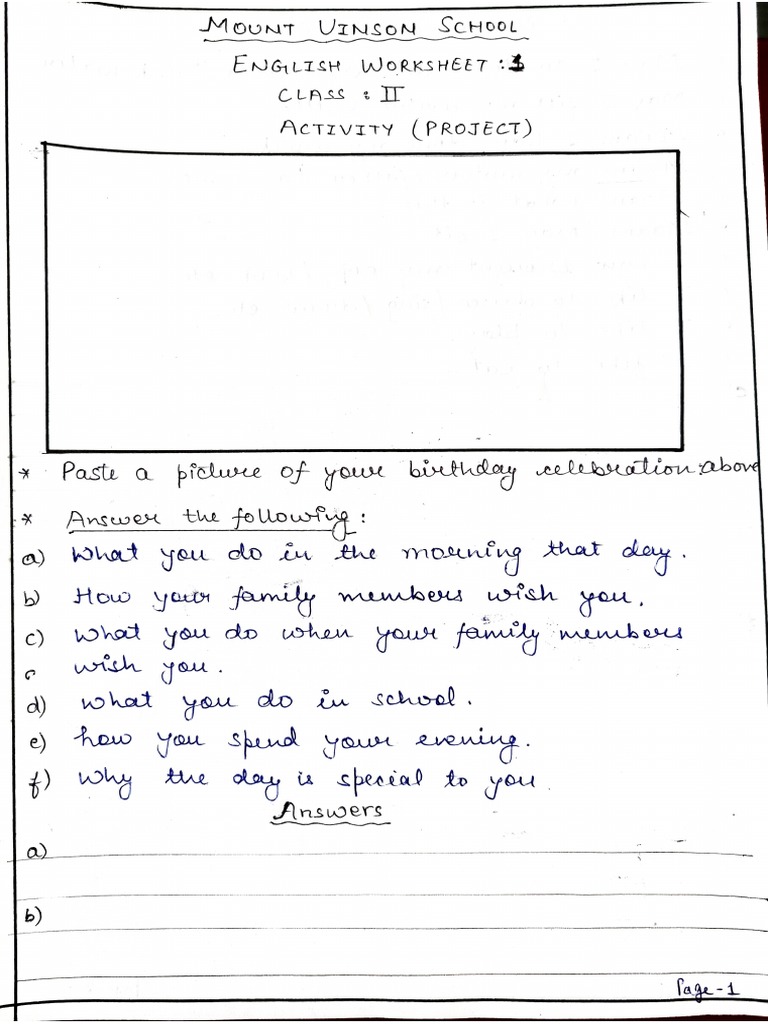 MOUNT VINSON SCHOOL
ENGLISH WORKSHEET : 1
CLASS : II
ACTIVITY (PROJECT)
* Paste a picture of your birthday celebration :above
* Answer the following :
a) What you do in the morning that day.
b) How your family members wish you.
c) What you do when your family members
c wish you.
d) what you do in school.
e) how you spend your evening.
f) Why the day is special to you.
Answers
a)
b)
Page-1